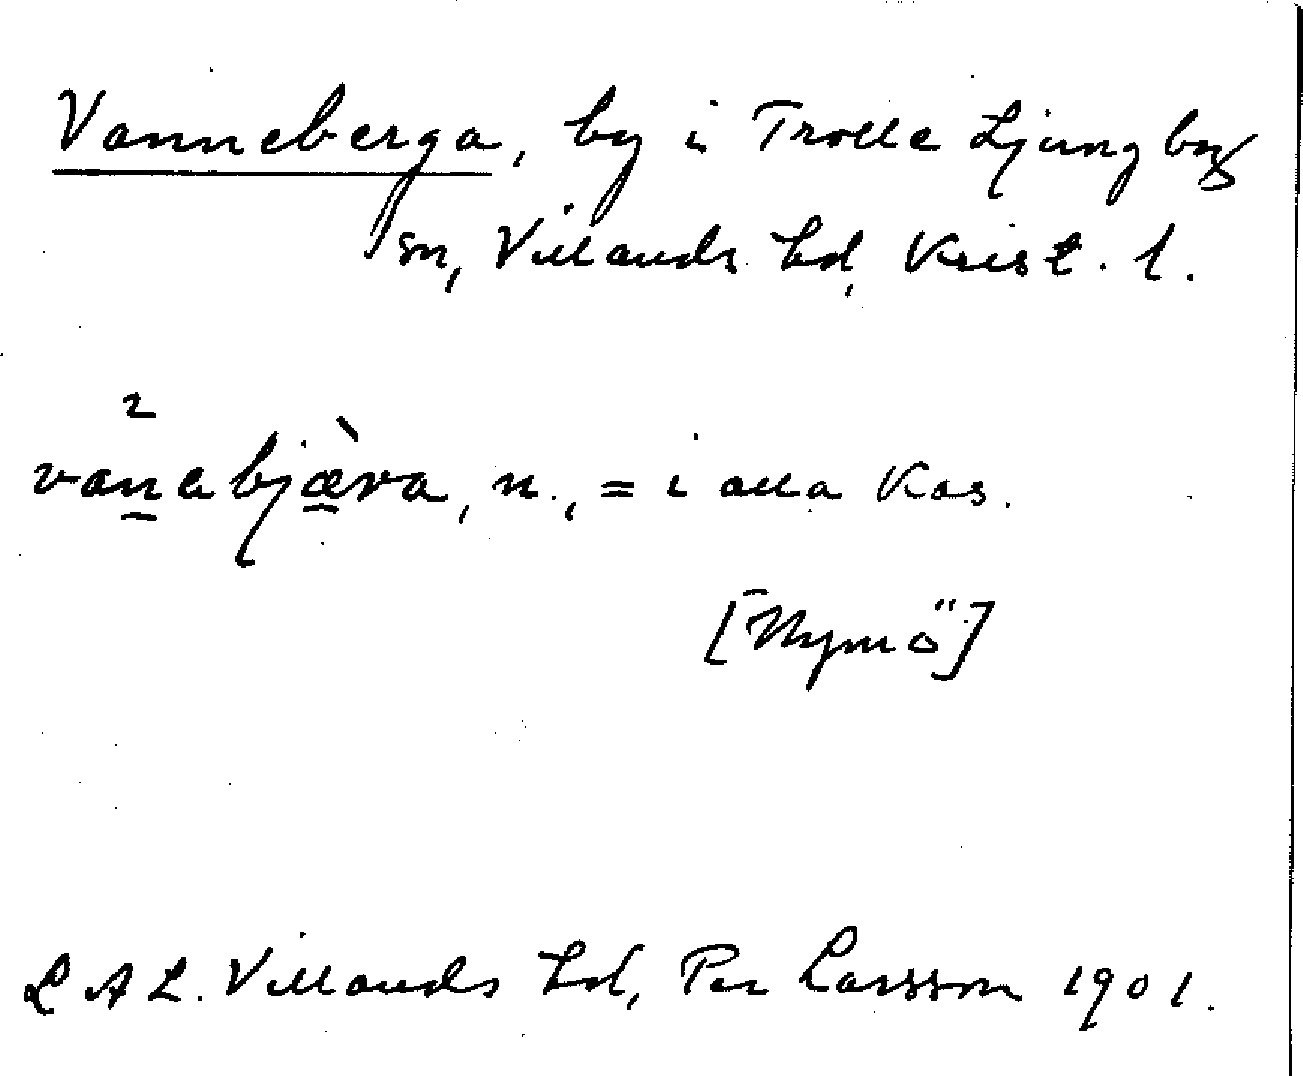 Vanneberga, by i Trolle Ljungby
sn, Villands hd, Krist. l.
2
van̲abjæ̲̀va, n., = i alla kas.
[Nymö]
LAL. Villands hd, Per Larsson 1901.